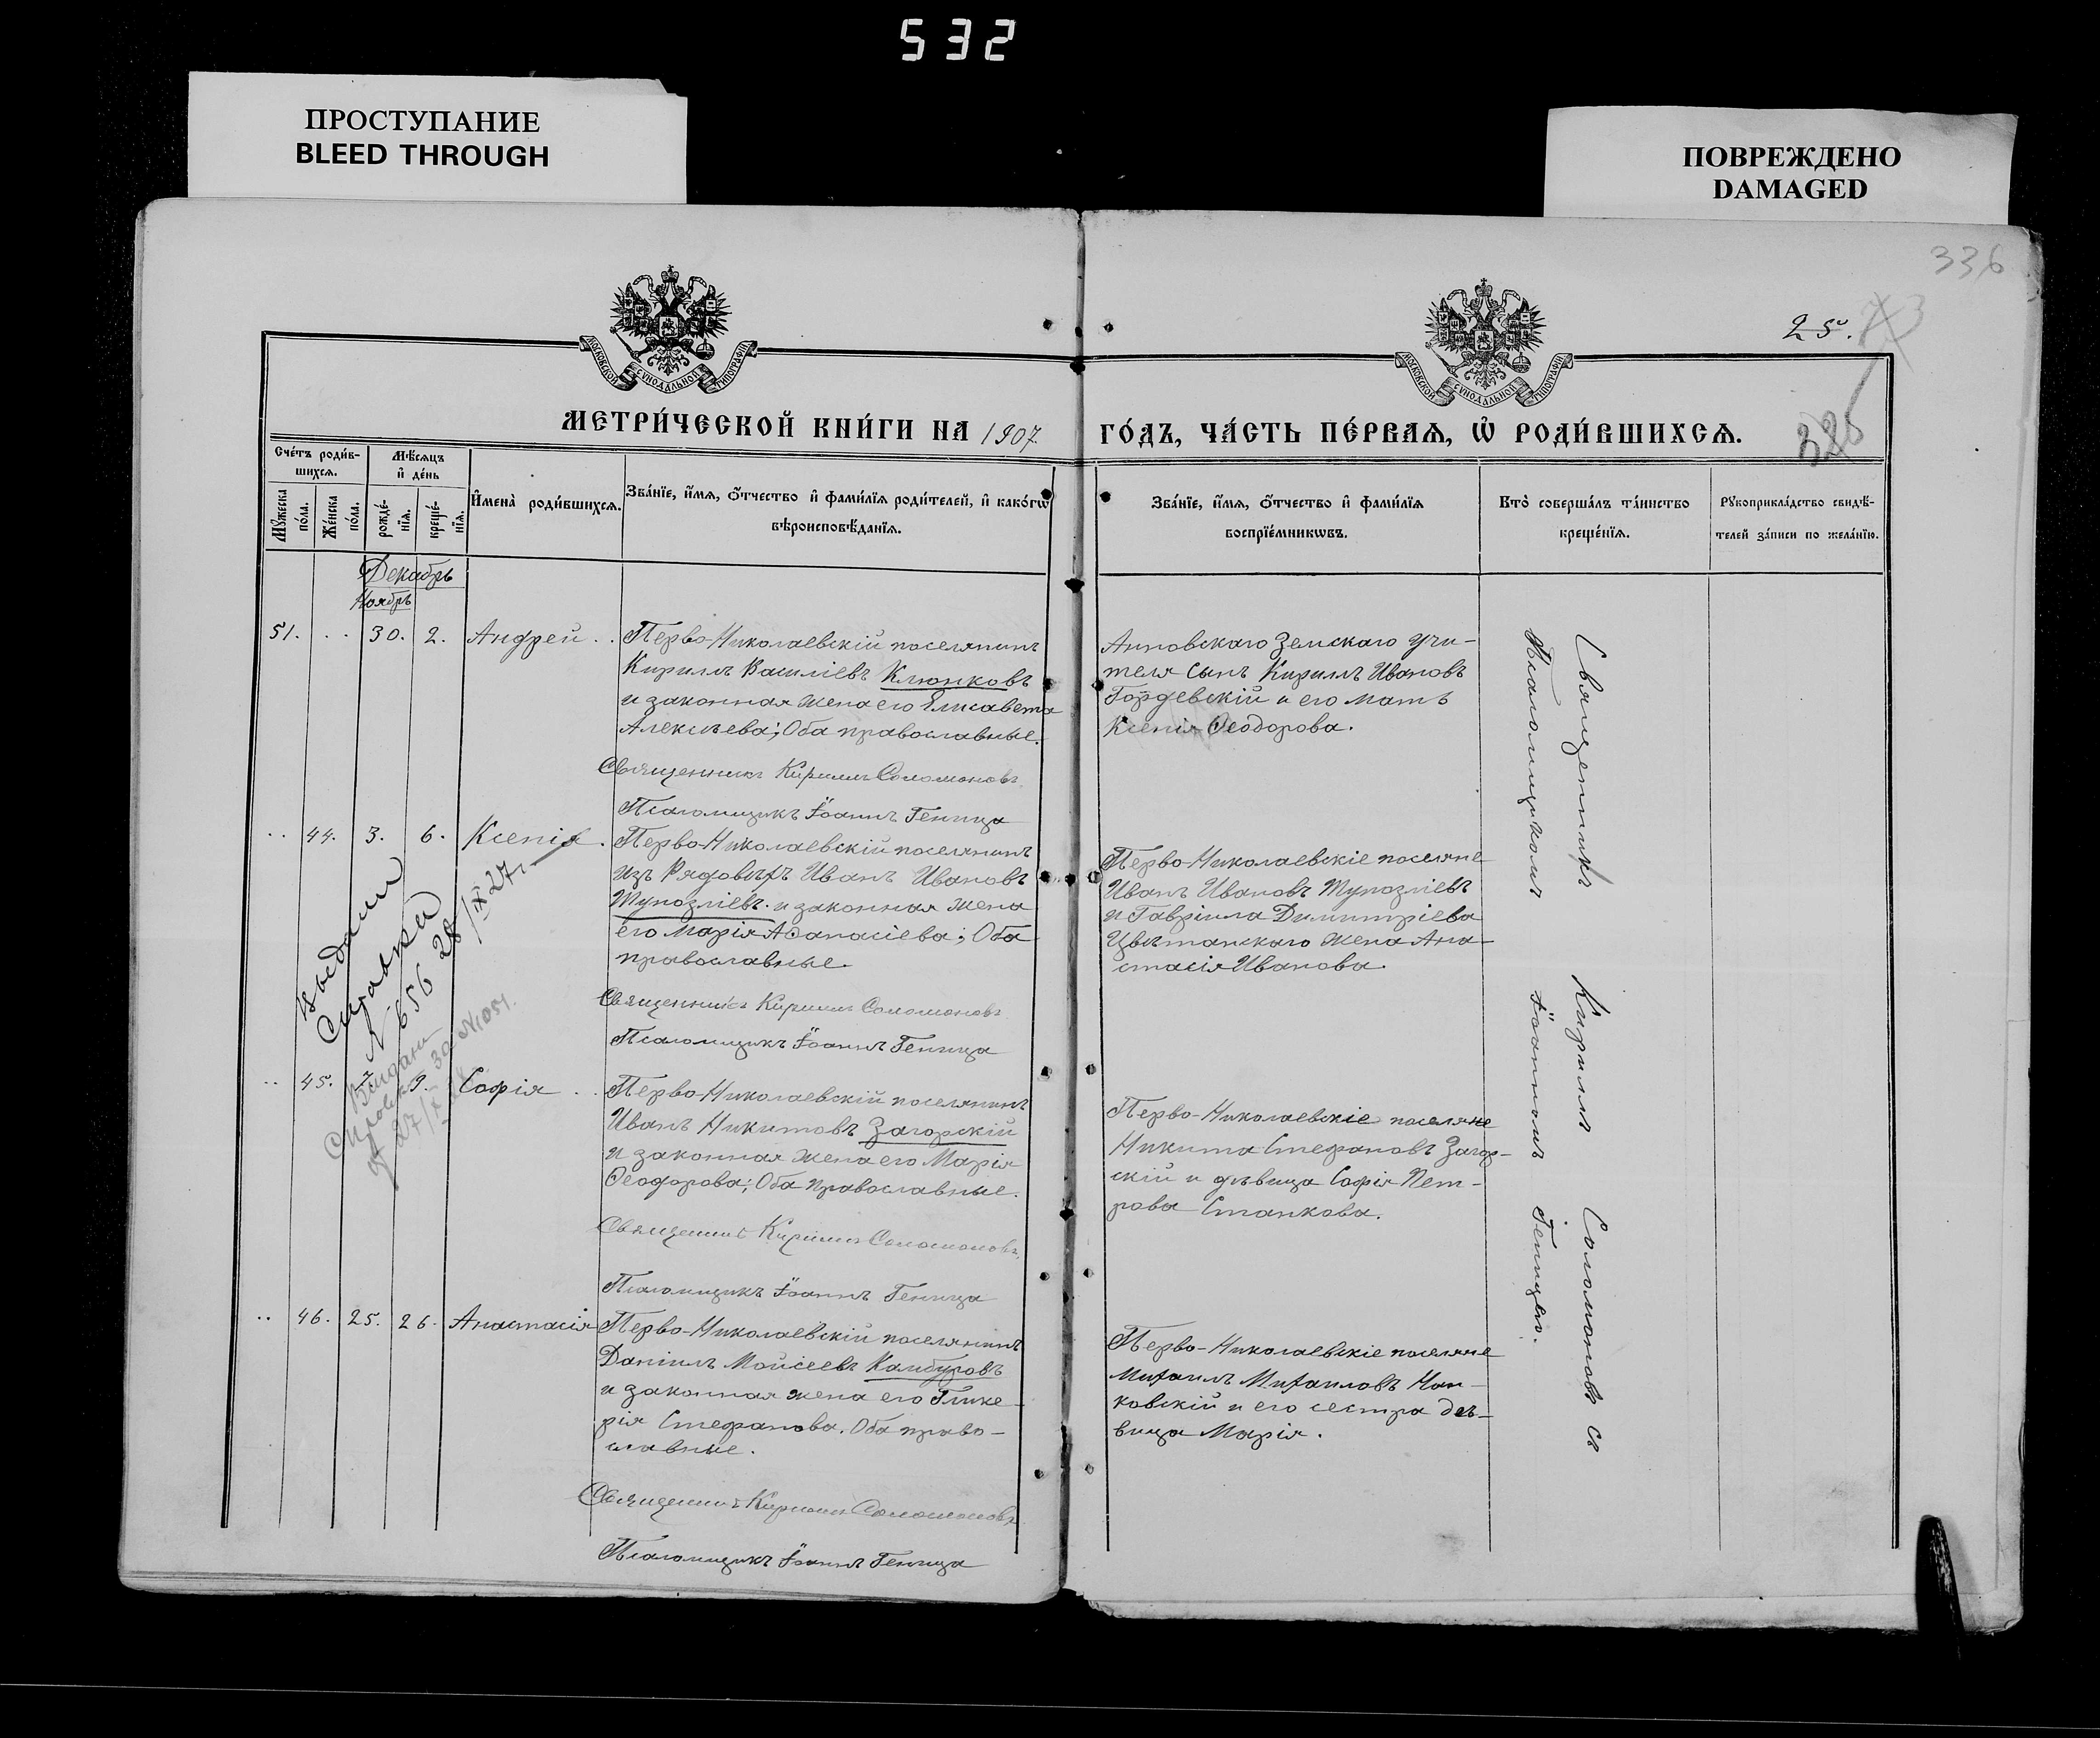 532
ПРОСТУПАНИЕ
BLEED THROUGH
ПОВРЕЖДЕНО
DAMAGED
336
25.
МОСКОВСКОЙ СѴНОДАЛЬНОЙ ТИПОГРАФІИ
МОСКОВСКОЙ СѴНОДАЛЬНОЙ ТИПОГРАФІИ
МЕТРИ́ЧЕСКОЙ КНИ́ГИ НА 1907 ГО́ДЪ, ЧА́СТЬ ПЕ́РВАЯ, Ѡ҆ РОДИ́ВШИХСЯ.
Сче́тъ роди́в-
шихся.
Мѣ́сяцъ
и҆ де́нь
Мꙋ́жеска
по́ла.
Же́нска
по́ла.
рожде́-
нїя.
креще́-
нїя.
И҆мена̀ роди́вшихся.
Зва́нїе, и҆́мя, ѻ҆́тчество и҆ фами́лїя роди́телей, и҆ како́гѡ
вѣроисповѣ́данїя.
Зва́нїе, и҆́мя, ѻ҆́тчество и҆ фами́лїя
воспрїе́мникѡвъ.
Кто̀ соверша́лъ та́инство
креще́нїя.
Рꙋкоприкла́дство свидѣ́-
телей за́писи по жела́нїю.
Декабрь
Ноябрь
51. . . 30. 2. Андрей . .
Перво-Николаевскій поселянинъ
Кириллъ Василіевъ Клюпковъ
и законная жена его Елисавета
Алексѣева; Оба православные.
Священникъ Кириллъ Соломоновъ
Псаломщикъ Іоаннъ Геница
Анновскаго Земскаго учи-
теля сынъ Кириллъ Ивановъ
Гордевскій и его мать
Ксенія Ѳеодорова.
. . 44. 3. 6. Ксенія .
Перво-Николаевскій поселянинъ
изъ Рядовыхъ Иванъ Ивановъ
Тупозліевъ и законная жена
его Марія Аѳанасіева; Оба
православные.
Священникъ Кириллъ Соломоновъ
Псаломщикъ Іоаннъ Геница
Перво-Николаевскіе поселяне
Иванъ Ивановъ Тупозліевъ
и Гавріила Димитріева
Цвѣтанскаго жена Ана-
стасія Иванова.
Выдан
Справка
N 656 28/IX 27
Выдана
Справка за №1051.
27/X
. . 45. 7. 9. Софія . .
Перво-Николаевскій поселянинъ
Иванъ Никитовъ Загорскій
и законная жена его Марія
Ѳеодорова; Оба православные.
Священникъ Кириллъ Соломоновъ
Псаломщикъ Іоаннъ Геница
Перво-Николаевскіе поселяне
Никита Стефановъ Загор-
скій и дѣвица Софія Пет-
рова Станкова.
. . 46. 25. 26. Анастасія
Перво-Николаевскій поселянинъ
Даніилъ Моисеевъ Камбуровъ
и законная жена его Глике-
рія Стефанова. Оба право-
славные.
Священникъ Кириллъ Соломоновъ
Псаломщикъ Іоаннъ Геница
Перво-Николаевскіе поселяне
Михаилъ Михаиловъ Нан-
ковскій и его сестра дѣ-
вица Марія.
Священникъ Кириллъ Соломоновъ съ
Псаломщикомъ Іоанномъ Геницею.